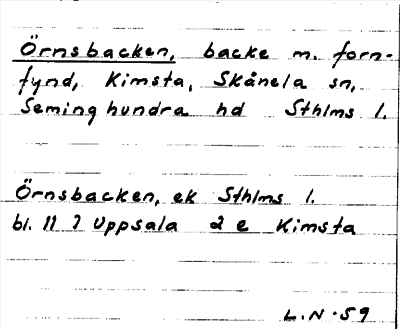 Örnsbacken, backe m. forn-
fynd, Kimsta, Skånela sn,
Seminghundra hd Sthlms l.
Örnsbacken, ek Sthlms l.
bl. 11 7 Uppsala 2 e Kimsta
L.N.59